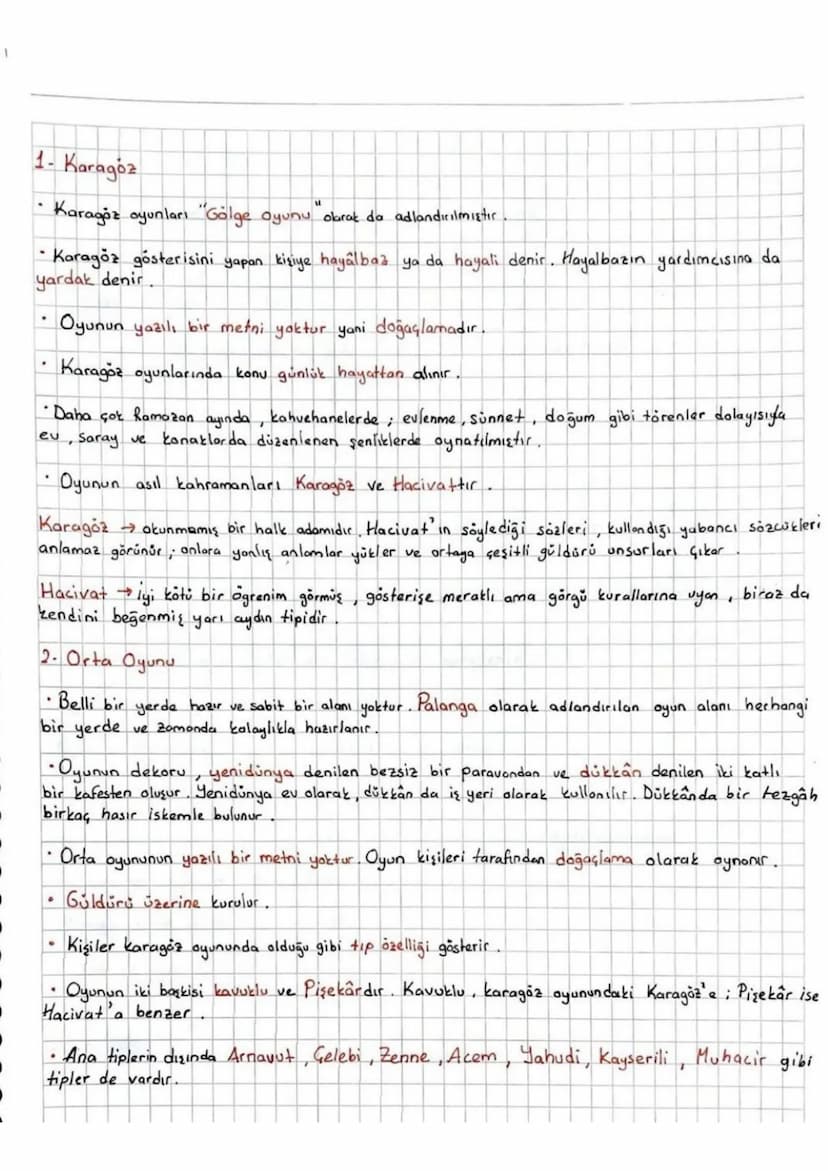 1- Karagöz
• Karagöz oyunları "Gölge oyunu" olarak da adlandırılmıştır.
• Karagöz gösterisini yapan kişiye hayâlbaz ya da hayali denir. Hayalbazın yardımcısına da
yardak denir.
• Oyunun yazılı bir metni yoktur yani doğaçlamadır.
• Karagöz oyunlarında konu günlük hayattan alınır.
• Daha çok Ramazan ayında, kahvehanelerde; evlenme, sünnet, doğum gibi törenler dolayısıyla
ev, saray ve konaklarda düzenlenen şenliklerde oynatılmıştır.
• Oyunun asıl kahramanları Karagöz ve Hacivattır.
Karagöz → okunmamış bir halk adamıdır. Hacivat'ın söylediği sözleri, kullandığı yabancı sözcükleri
anlamaz görünür; onlara yanlış anlamlar yükler ve ortaya çeşitli güldürü unsurları çıkar.
Hacivat → iyi kötü bir öğrenim görmüş, gösterişe meraklı ama görgü kurallarına uyan, biraz da
kendini beğenmiş yarı aydın tipidir.
2- Orta Oyunu
• Belli bir yerde hazır ve sabit bir alanı yoktur. Palanga olarak adlandırılan oyun alanı herhangi
bir yerde ve zamanda kolaylıkla hazırlanır.
• Oyunun dekoru, yenidünya denilen bezsiz bir paravandan ve dükkân denilen iki katlı
bir kafesten oluşur. Yenidünya ev olarak, dükkân da iş yeri olarak kullanılır. Dükkânda bir tezgâh
birkaç hasır iskemle bulunur.
• Orta oyununun yazılı bir metni yoktur. Oyun kişileri tarafından doğaçlama olarak oynanır.
• Güldürü üzerine kurulur.
• Kişiler karagöz oyununda olduğu gibi tıp özelliği gösterir.
• Oyunun iki başkisi kavuklu ve Pişekârdır. Kavuklu, karagöz oyunundaki Karagöz'e; Pişekâr ise
Hacivat'a benzer.
• Ana tiplerin dışında Arnavut, Çelebi, Zenne, Acem, Yahudi, Kayserili, Muhacir gibi
tipler de vardır.